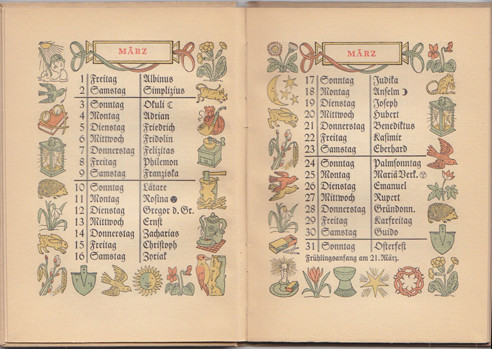 MÄRZ
1 Freitag Albinus
2 Samstag Simplizius
3 Sonntag Okuli ☾
4 Montag Adrian
5 Dienstag Friedrich
6 Mittwoch Fridolin
7 Donnerstag Felizitas
8 Freitag Philemon
9 Samstag Franziska
10 Sonntag Lätare
11 Montag Rosina
12 Dienstag Gregor d. Gr.
13 Mittwoch Ernst
14 Donnerstag Zacharias
15 Freitag Christoph
16 Samstag Zyriak
MÄRZ
17 Sonntag Judika
18 Montag Anselm ☽
19 Dienstag Joseph
20 Mittwoch Hubert
21 Donnerstag Benediktus
22 Freitag Kasimir
23 Samstag Eberhard
24 Sonntag Palmsonntag
25 Montag Mariä Verk.
26 Dienstag Emanuel
27 Mittwoch Rupert
28 Donnerstag Gründonn.
29 Freitag Karfreitag
30 Samstag Guido
31 Sonntag Osterfest
Frühlingsanfang am 21. März.